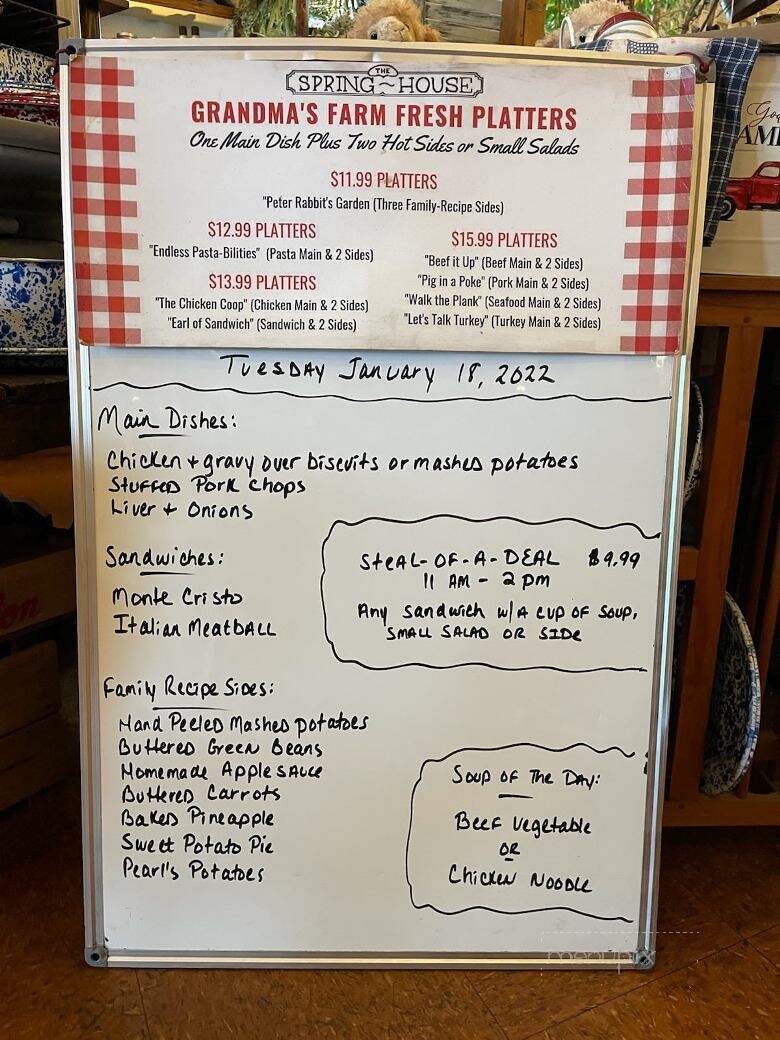 THE
SPRING~HOUSE
GRANDMA'S FARM FRESH PLATTERS
One Main Dish Plus Two Hot Sides or Small Salads
$11.99 PLATTERS
"Peter Rabbit's Garden (Three Family-Recipe Sides)
$12.99 PLATTERS
"Endless Pasta-Bilities" (Pasta Main & 2 Sides)
$13.99 PLATTERS
"The Chicken Coop" (Chicken Main & 2 Sides)
"Earl of Sandwich" (Sandwich & 2 Sides)
$15.99 PLATTERS
"Beef it Up" (Beef Main & 2 Sides)
"Pig in a Poke" (Pork Main & 2 Sides)
"Walk the Plank" (Seafood Main & 2 Sides)
"Let's Talk Turkey" (Turkey Main & 2 Sides)
Tuesday January 18, 2022
Main Dishes:
Chicken + gravy over biscuits or mashed potatoes
Stuffed Pork Chops
Liver + Onions
Sandwiches:
Monte Cristo
Italian Meatball
STEAL-OF-A-DEAL $9.99
11 AM - 2 pm
Any sandwich w/A cup of soup,
small salad or side
Family Recipe Sides:
Hand Peeled Mashed potatoes
Buttered Green Beans
Homemade Applesauce
Buttered Carrots
Baked Pineapple
Sweet Potato Pie
Pearl's Potatoes
Soup of The Day:
Beef Vegetable
OR
Chicken Noodle